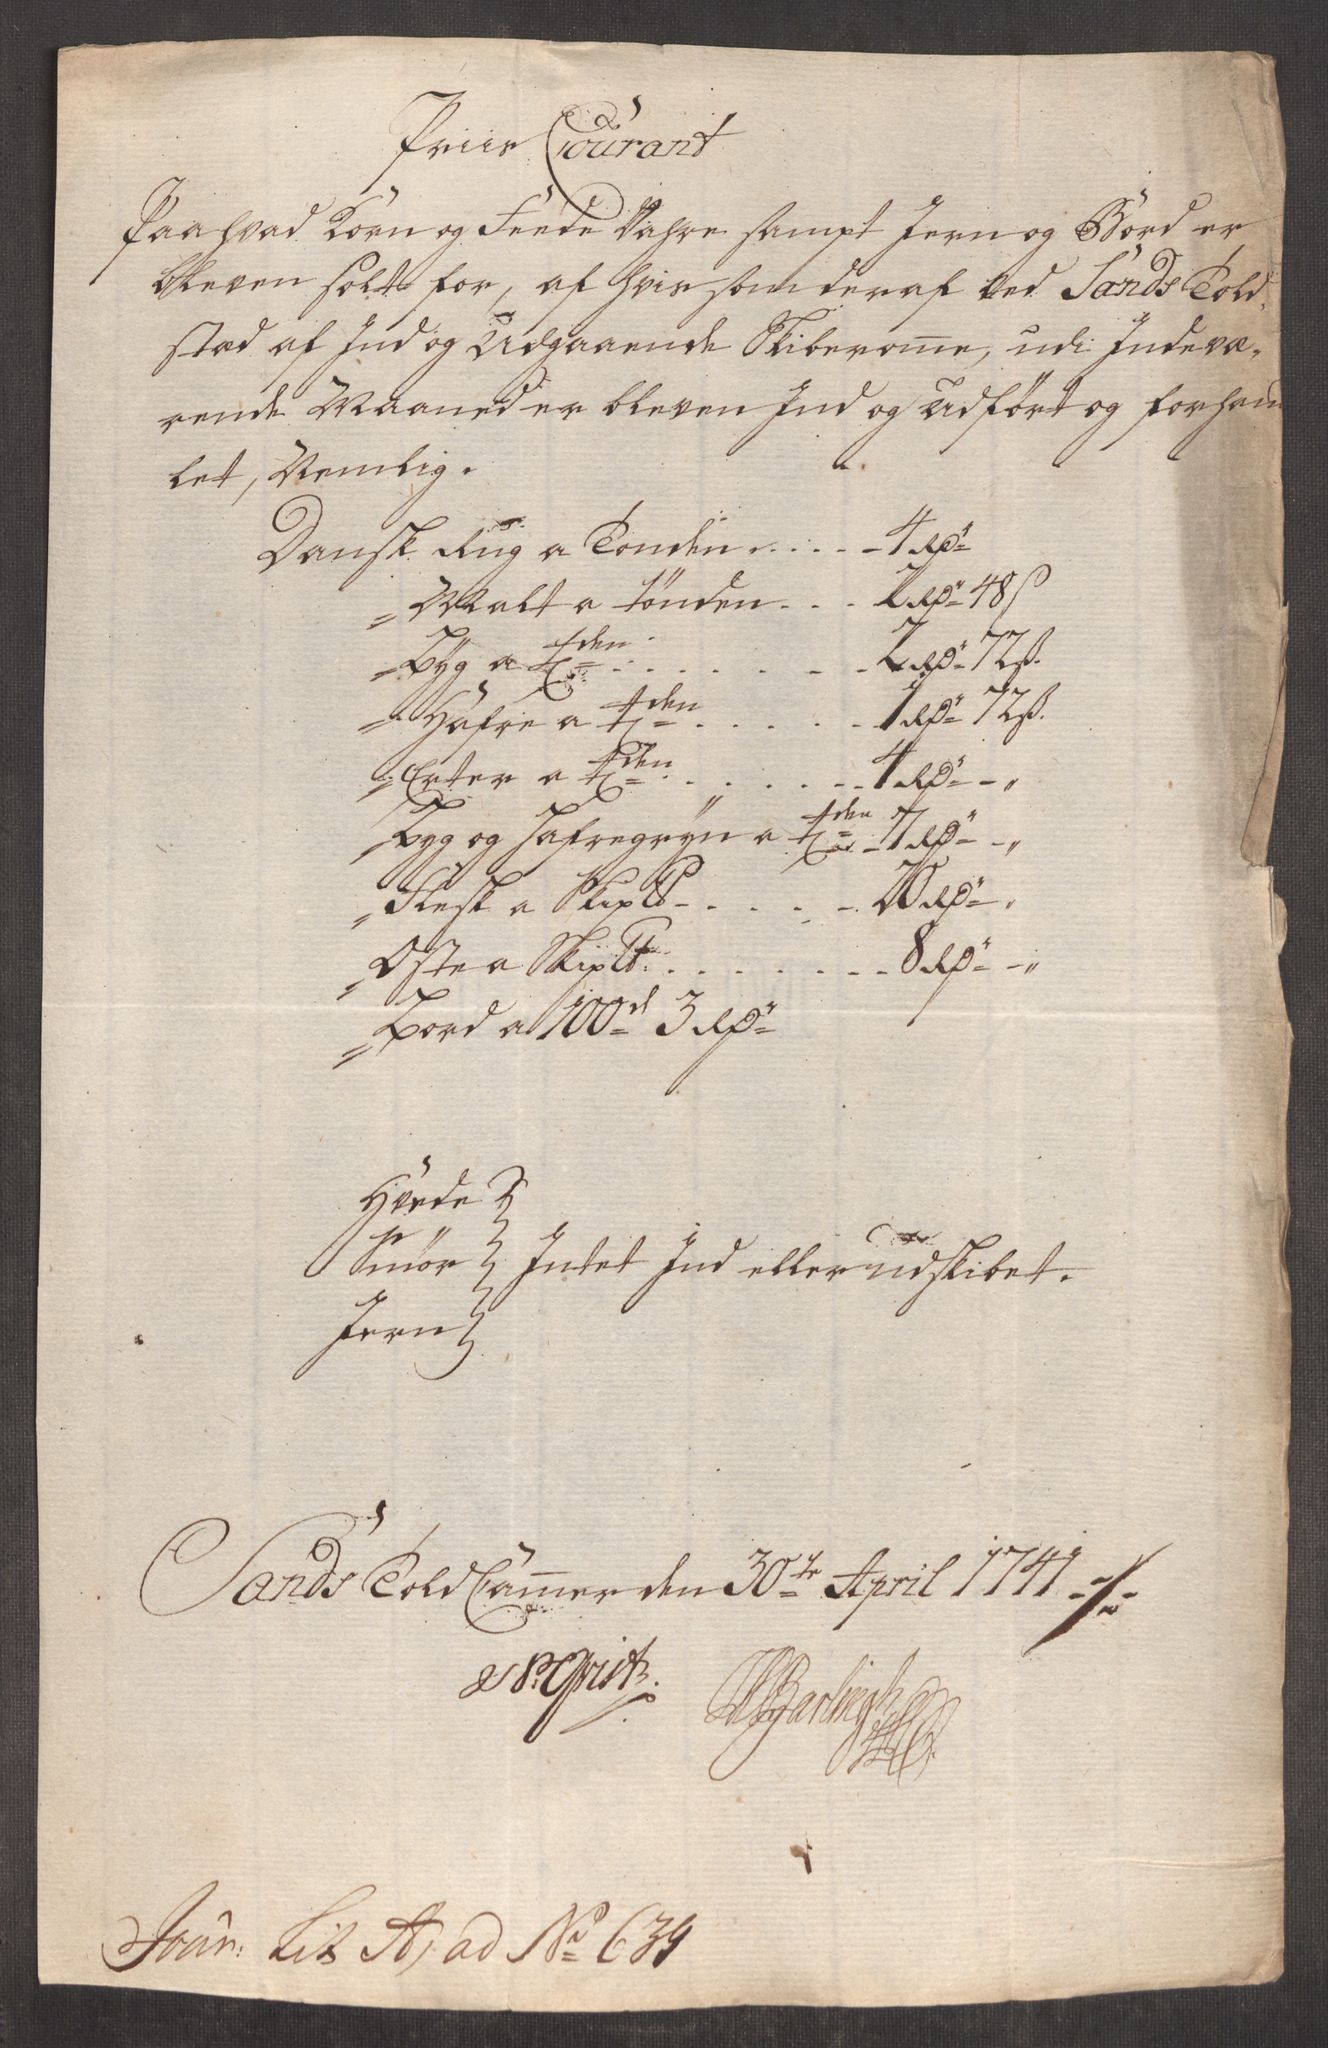 Priis Courant
Paa hvad Korn og Feede Vahre sampt Jern og Bord er
bleven solt for, af hvis som deraf ved Sands Told-
stæd af Ind og Udgaaende Skiberom̅e, udi Indevæ-
rende Maaned er bleven Ind og Udført og forhand
let, Nemlig.
Dansk Rug a Tønden . . . . 4 Rdr
" Malt a tønden . . . 2 Rdr 48 s
" Byg a Tden . . . . . . 2 Rdr 72 ß.
" Hafre a Tden . . . . . 1 Rdr 72 ß.
" Erter a Tden . . . . . . 4 Rdr - "
" Byg og Hafregryn a Tden 7 Rdr - "
" Flesk a Skip℔ - . . . . 20 Rdr "
" Oste a Skip℔ . . . . . . . . 8 Rdr - "
" Bord a 100d 3 Rdr
Hvede
Smør Intet Ind eller udskibet.
Jern
Sands Told Cam̅er den 30te April 1741
Lit A, ad No 634